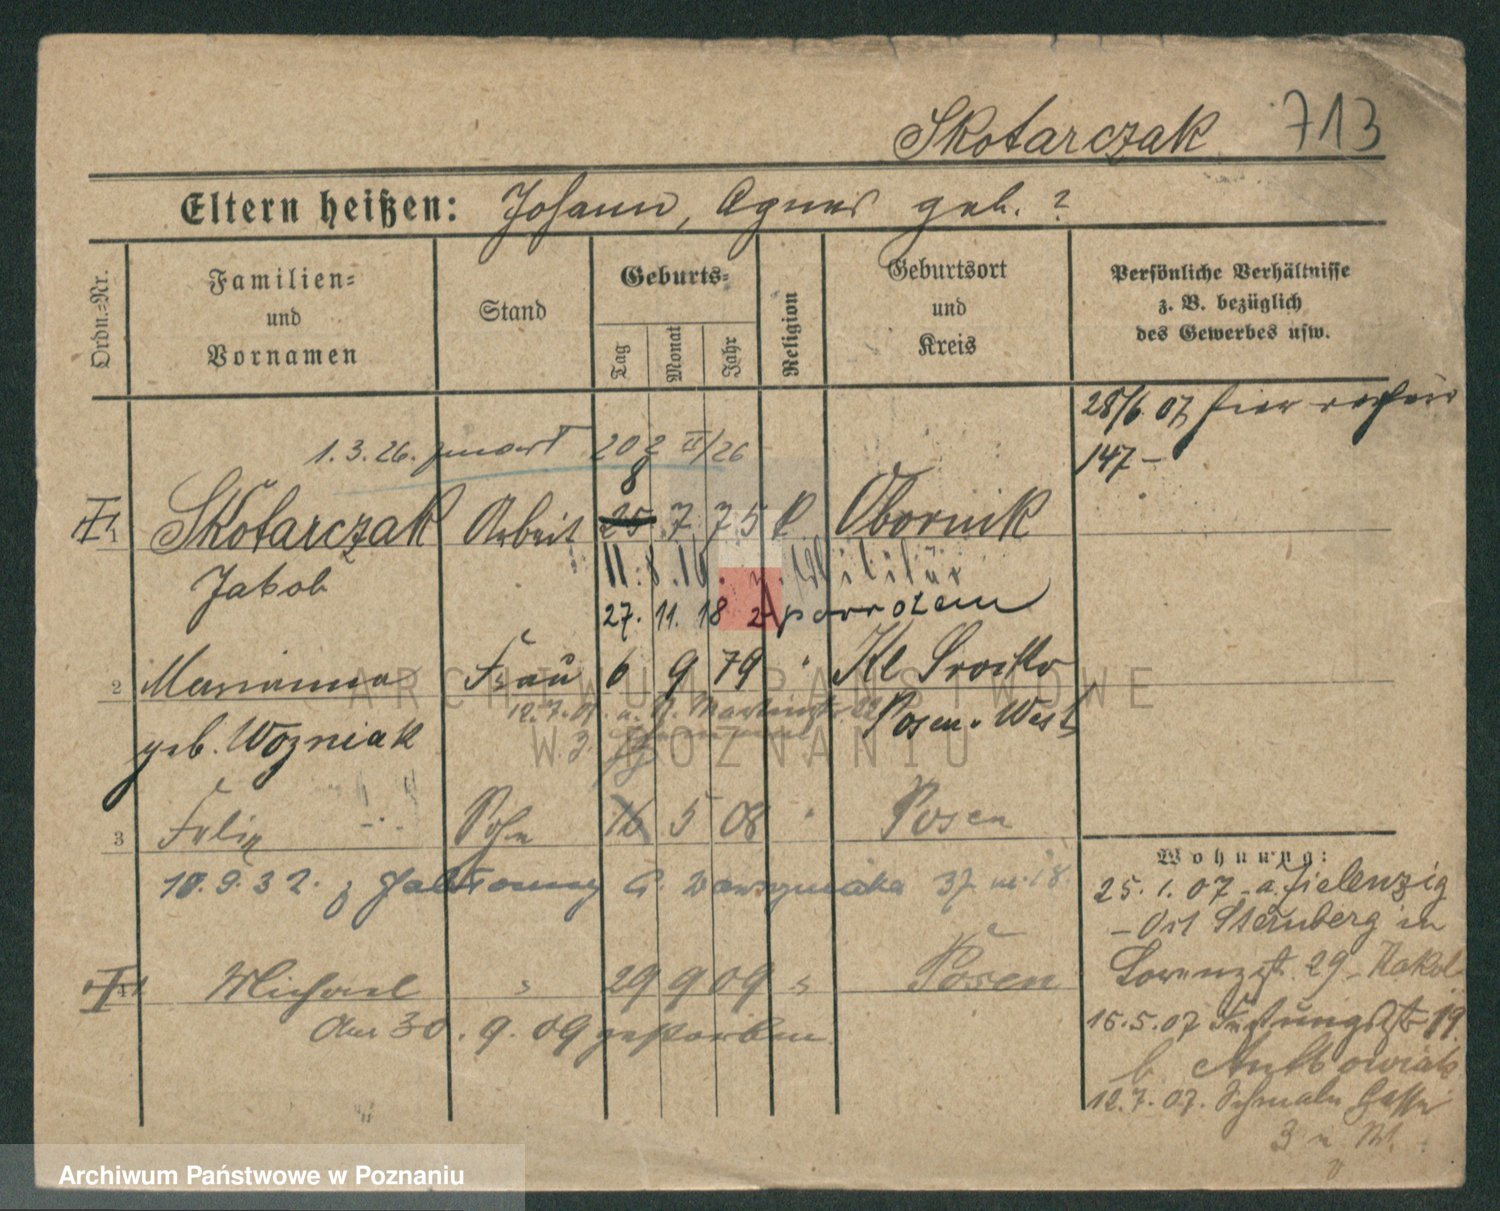 Skotarczak 713
Eltern heißen: Johann, Agnes geb. ?
Ordn.-Nr.
Familien-
und
Vornamen
Stand
Geburts-
Tag
Monat
Jahr
Religion
Geburtsort
und
Kreis
Persönliche Verhältnisse
z. B. bezüglich
des Gewerbes usw.
28/6. 07 hier
147-
1.3.26. zmarł 20 2 /26
8
1 Skotarczak Arbeit 25 7 75 k Obornik
Jakob
11. 8. z. Militär
27. 11. 18
2 Marianna Frau 6 9 79 " Kl
geb. Wozniak Posen-West
12.7.07. a. Martinstr
3 Felix Sohn 16 5 08 " Posen
10.9.32. z
4 Michael " 29 9 09 " Posen
Am 30. 9. 09 gestorben
Wohnung:
25. 1. 07 a. Zielenzig
Ost Sternberg in
29
15.5.07 19
b
12.7.07. Schmale Gasse
3
ARCHIWUM PAŃSTWOWE
W POZNANIU
Archiwum Państwowe w Poznaniu